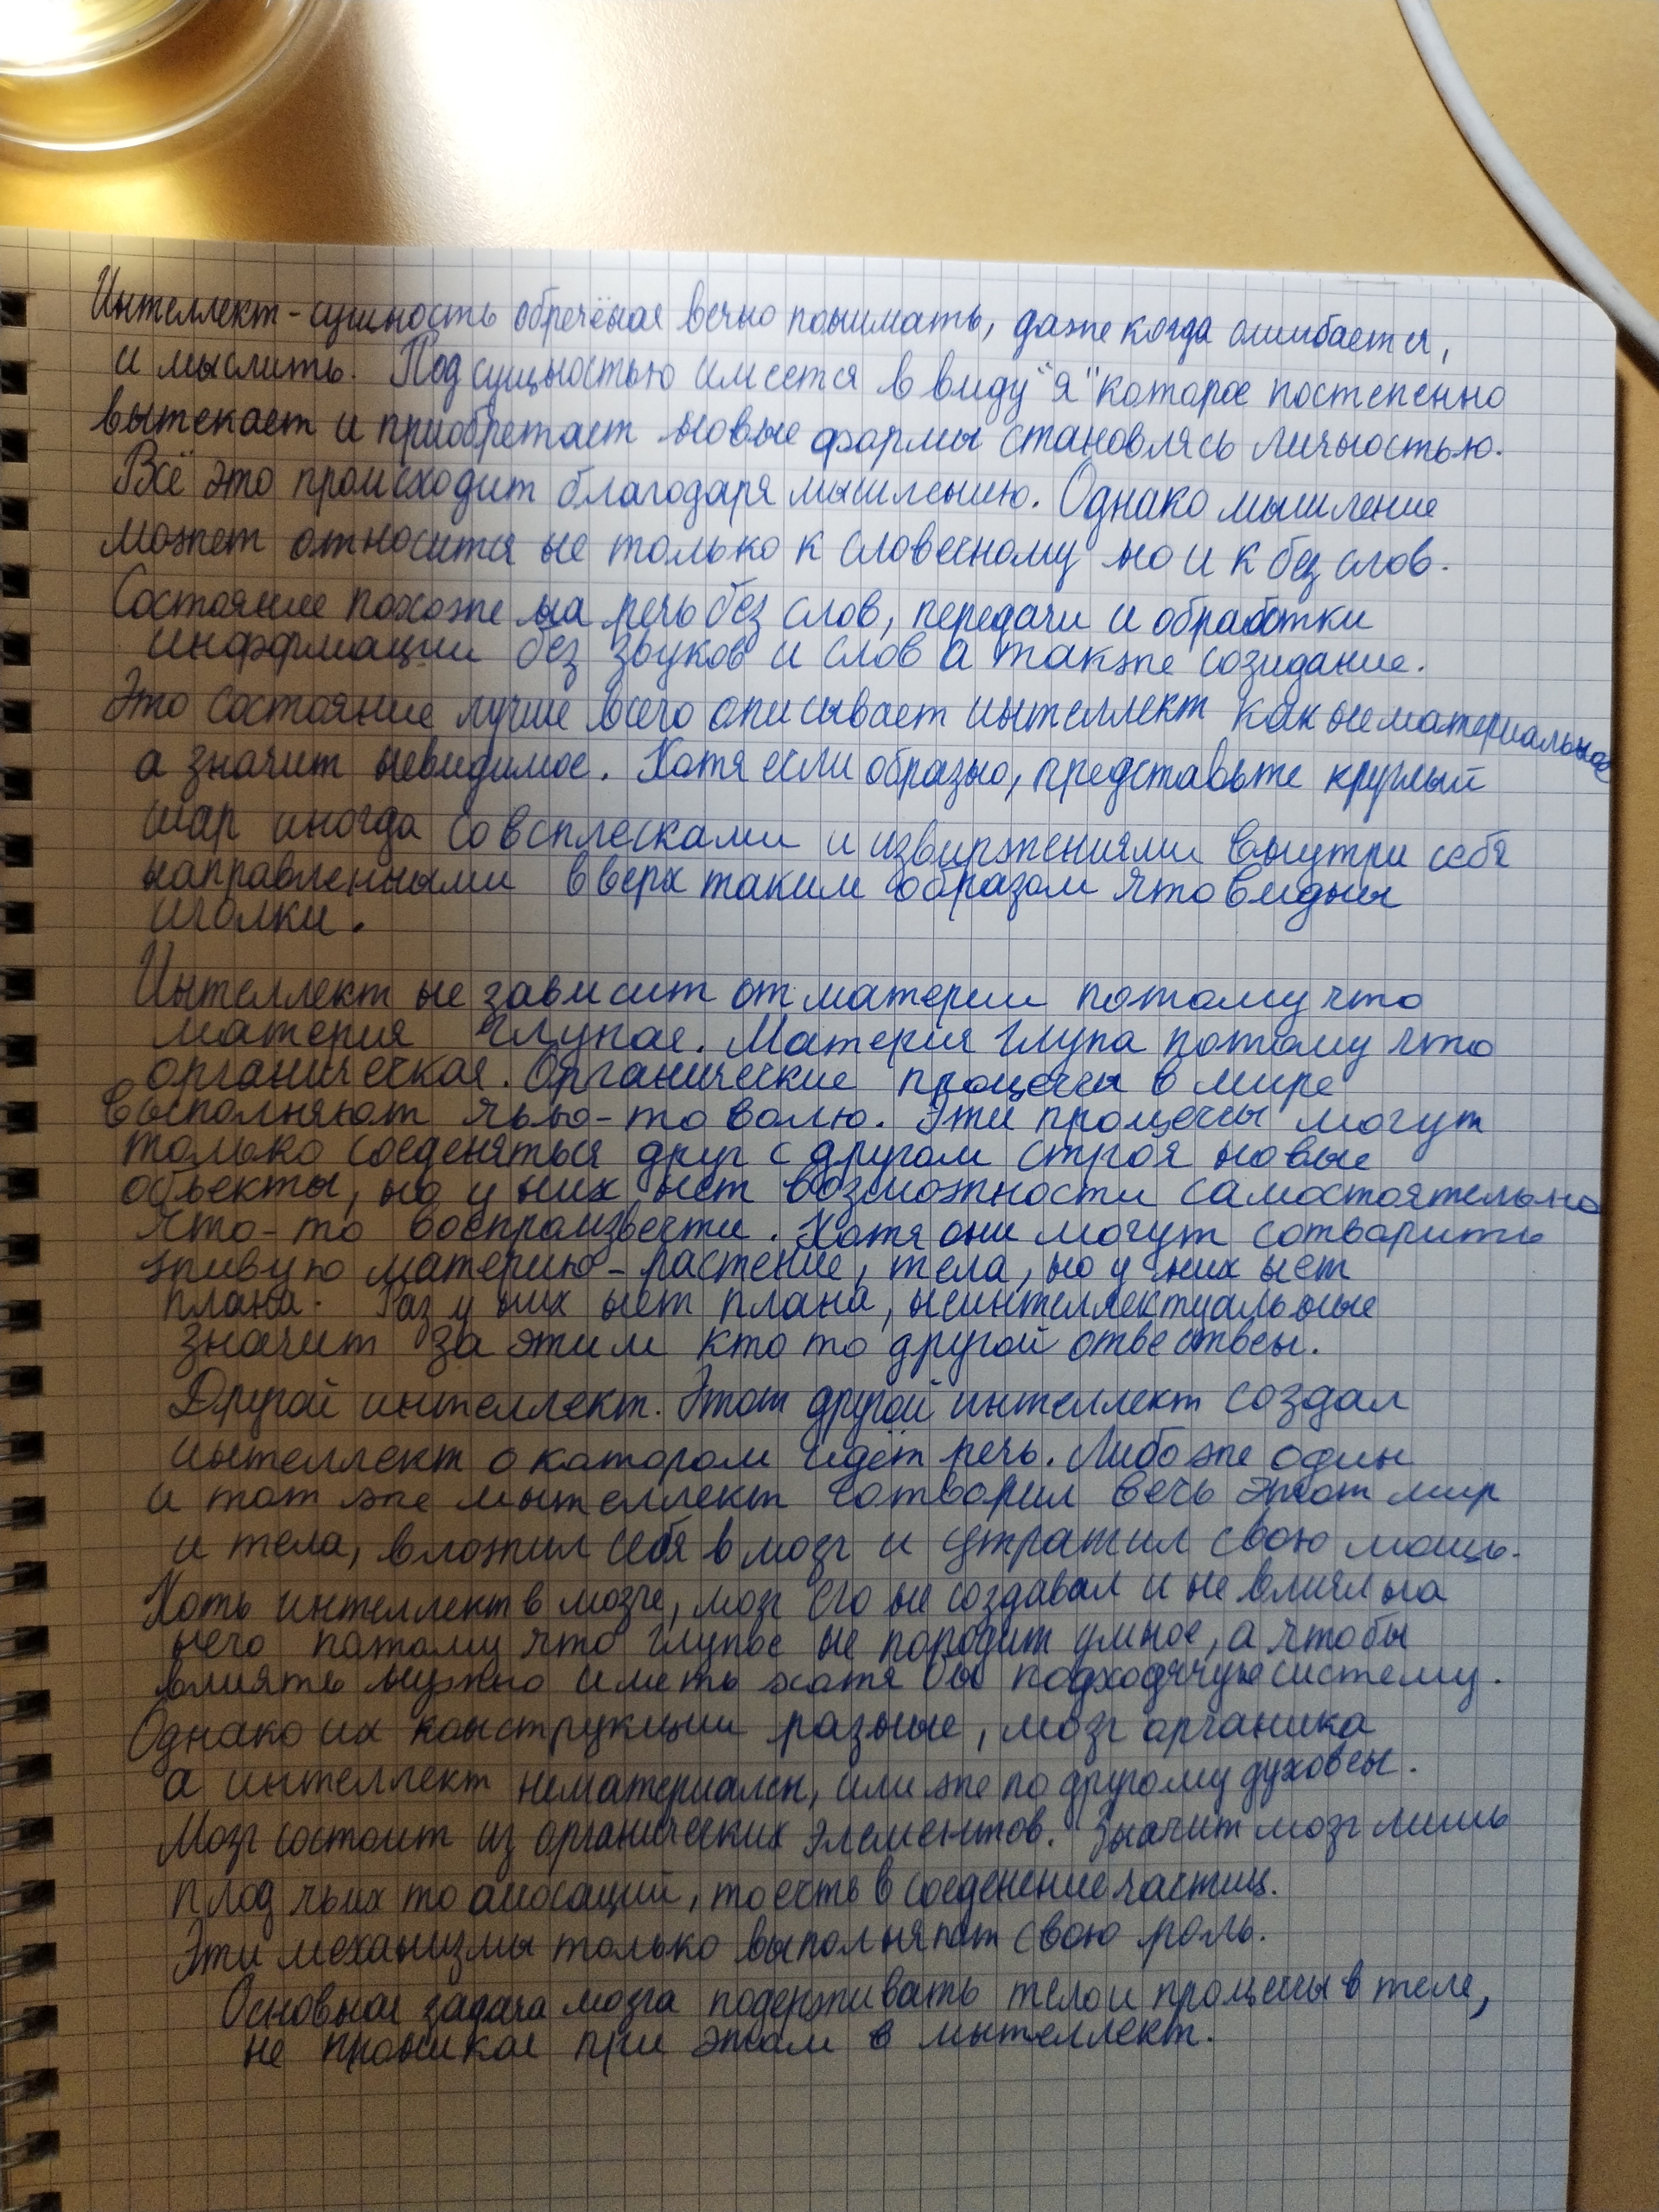 Интеллект - сущность обречёная вечно понимать, даже когда ошибается,
и мыслить. Под сущностью имеется в виду "я" которое постепенно
вытекает и приобретает новые формы становлясь личностью.
Всё это происходит благодаря мышлению. Однако мышление
может относится не только к словесному но и к без слов.
Состояние похоже на речь без слов, передачи и обработки
информации без звуков и слов а также созидание.
Это состояние лучше всего описывает интеллект как нематериальное
а значит невидимое. Хотя если образно, представьте круглый
шар иногда со всплесками и извиржениями внутри себя
направленными вверх таким образом что видны
иголки.
Интеллект не зависит от материи потому что
материя глупая. Материя глупа потому что
органическая. Органические процессы в мире
высполняют чью-то волю. Эти процессы могут
только соеденяться друг с другом строя новые
объекты, но у них нет возможности самостоятельно
что-то воспроизвести. Хотя они могут сотворить
живую материю - растение, тела, но у них нет
плана. Раз у них нет плана, неинтеллектуальные
значит за этим кто то другой отвественен.
Другой интеллект. Этот другой интеллект создал
интеллект о котором идёт речь. Либо же один
и тот же интеллект сотворил весь этот мир
и тела, вложил себя в мозг и утратил свою мощь.
Хоть интеллект в мозге, мозг его не создавал и не влиял на
него потому что глупое не породит умное, а чтобы
влиять нужно иметь хотя бы подходячую систему.
Однако их конструкции разные, мозг органика
а интеллект нематериален, или же по другому духовен.
Мозг состоит из органических элементов. Значит мозг лишь
плод чьих то то есть в соеденение частиц.
Эти механизмы только выполняют свою роль.
Основная задача мозга подерживать тело и процессы в теле,
не проникая при этом в интеллект.